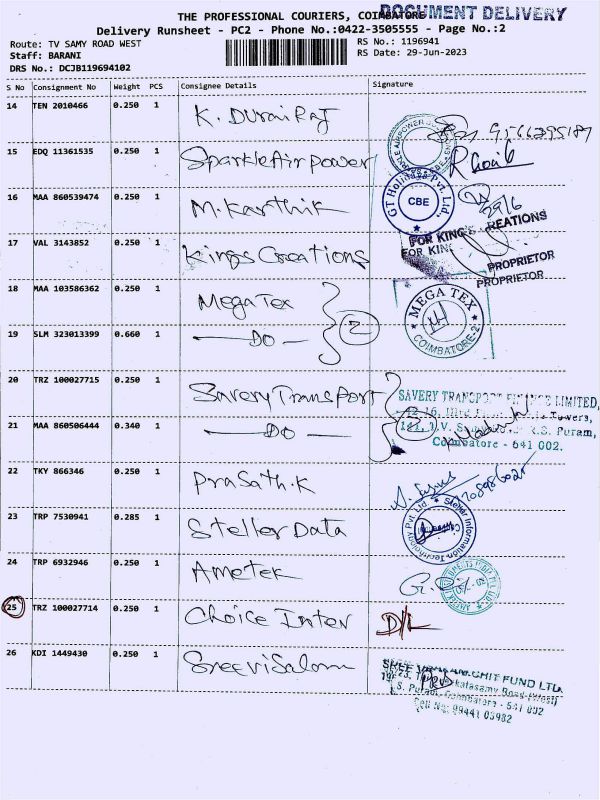 THE PROFESSIONAL COURIERS, COIMBATORE
DOCUMENT DELIVERY
Delivery Runsheet - PC2 - Phone No.:0422-3505555 - Page No.:2
Route: TV SAMY ROAD WEST
RS No.: 1196941
Staff: BARANI
RS Date: 29-Jun-2023
DRS No.: DCJB119694102
S No Consignment No Weight PCS Consignee Details Signature
14 TEN 2010466 0.250 1 K. DURAI RAJ
15 EDQ 11361535 0.250 1 Sparkle Air power
16 MAA 860539474 0.250 1 M. Karthik
GT Holidays Pvt. Ltd.
CBE
29/6
17 VAL 3143852 0.250 1 Kings Creations
FOR KING'S CREATIONS
FOR KING
PROPRIETOR
PROPRIETOR
18 MAA 103586362 0.250 1 Mega Tex
2
MEGA TEX
COIMBATORE-2
19 SLM 323013399 0.660 1 DO
20 TRZ 100027715 0.250 1 Savery Transport
SAVERY TRANSPORT FINANCE LIMITED,
Towers,
21 MAA 860506444 0.340 1 DO
R.S. Puram,
Coimbatore - 641 002.
22 TKY 866346 0.250 1 Prasath.K
23 TRP 7530941 0.285 1 Steller Data
Stellar Information Technology Pvt. Ltd.
24 TRP 6932946 0.250 1 Ametek
25 TRZ 100027714 0.250 1 Choice Inter D/L
26 KDI 1449430 0.250 1 Sreevisalam
SREE VISALAM CHIT FUND LTD.
R.S. Puram, Coimbatore - 641 002
Cell No: 99441 03982